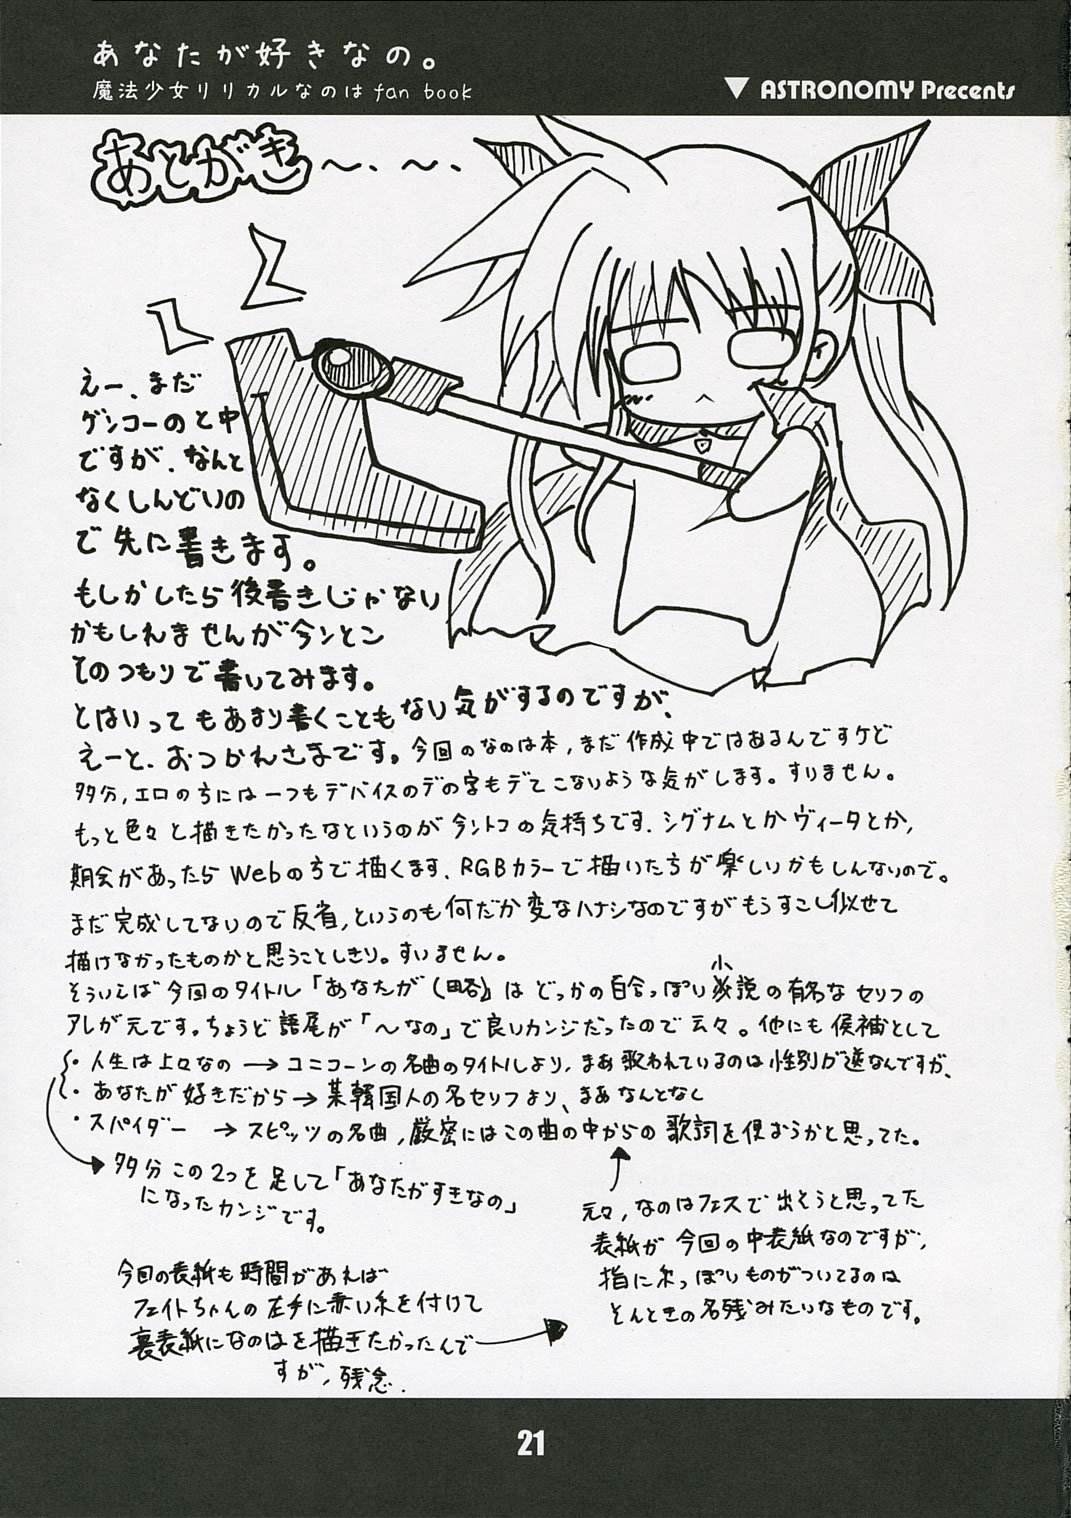 あなたが好きなの。
魔法少女リリカルなのは fan book
▼ ASTRONOMY Precents
あとがき〜、〜、
えー、まだ
ゲンコーのと中
ですが、なんと
なくしんどいの
で先に書きます。
もしかしたら後書きじゃない
かもしれませんが今ンとこ
そのつもりで書いてみます。
とはいってもあまり書くこともない気がするのですが、
えーと、おつかれさまです。今回のなのは本,まだ作成中ではあるんですケど
多分,エロのちには一つもデバイスのデの字もデてこないような気がします。すいません。
もっと色々と描きたかったなというのが今ントコの気持ちです.シグナムとかヴィータとか,
機会があったらWebの方で描くます、RGBカラーで描いた方が楽しいかもしんないので。
まだ完成してないので反省,というのも何だか変なハナシなのですがもうすこし似せて
描けなかったものかと思うことしきり。すいません。
そういえば今回のタイトル「あなたが(略)」はどっかの百合っぽい小説の有名なセリフの
アレが元です。ちょうど語尾が「〜なの」で良いカンジだったので云々。他にも候補として
・人生は上々なの → ユニコーンの名曲のタイトルより,まあ歌われているのは性別が逆なんですが、
・あなたが好きだから→某韓国人の名セリフより、まあなんとなく
・スパイダー → スピッツの名曲,厳密にはこの曲の中からの歌詞を使おうかと思ってた。
多分この2つを足して「あなたがすきなの」
になったカンジです。
元々,なのはフェスで出そうと思ってた
表紙が今回の中表紙なのですが,
指に糸っぽいものがついてるのは
そんときの名残みたいなものです。
今回の表紙も時間があれば
フェイトちゃんの左手に赤い糸を付けて
裏表紙になのはを描きたかったんで
すが,残念.
21